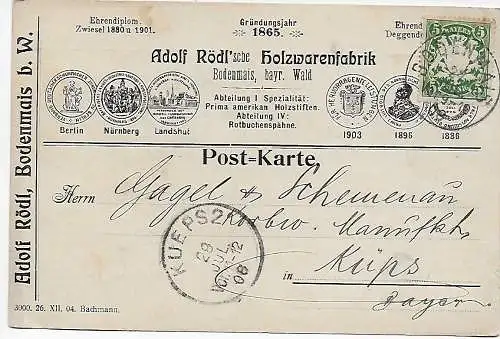 Ehrendiplom.
Zwiesel 1880 u 1901.
Gründungsjahr
1865.
Ehrend
Deggend
Adolf Rödl'sche Holzwarenfabrik
Bodenmais, bayr. Wald
Abteilung I Spezialität:
Prima amerikan. Holzstiften.
Abteilung IV:
Rotbuchenspähne.
Berlin Nürnberg Landshut
1903 1896 1886
5 5
Adolf Rödl, Bodenmais b. W.
Post-Karte.
Herrn Gagel & Schemenau
Korbw. Manufkt.
in Küps
Bayern
KUEPS 2
29
JUL
08
3000. 26. XII. 04. Bachmann.